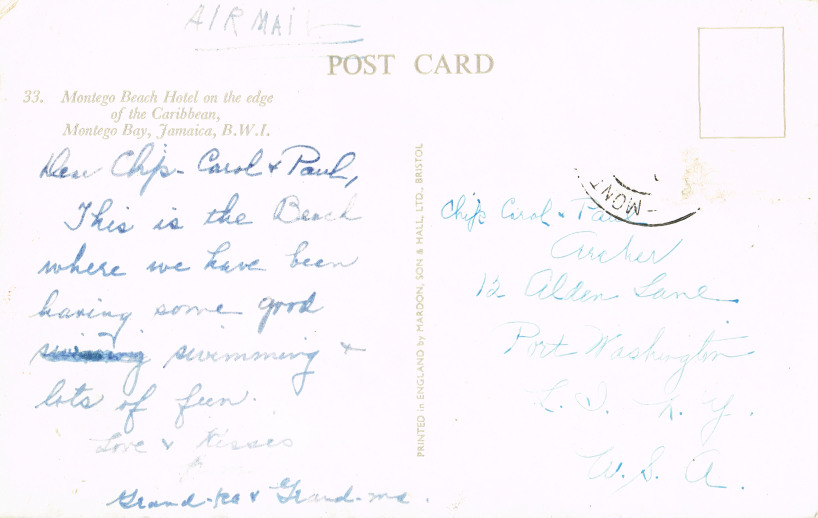 AIR MAIL
POST CARD
33. Montego Beach Hotel on the edge
of the Caribbean,
Montego Bay, Jamaica, B.W.I.
Dear Chip - Carol & Paul,
This is the Beach
where we have been
having some good
swimming &
lots of fun.
Love & Kisses
Grand-pa & Grand-ma.
PRINTED in ENGLAND by MARDON, SON & HALL, LTD., BRISTOL
- MONT
Chip Carol & Paul
Archer
12 Alden Lane
Port Washington
L. I. N. Y.
U. S. A.